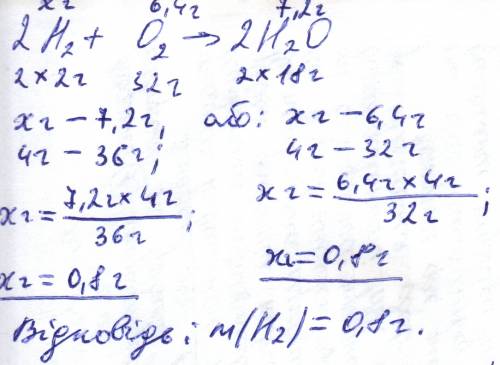 хг 6,4г 7,2г
2H₂ + O₂ → 2H₂O
2×2г 32г 2×18г
хг – 7,2г, або: хг – 6,4г
4г – 36г; 4г – 32г
хг = 7,2г×4г / 36г; хг = 6,4г×4г / 32г;
хг = 0,8г хг = 0,8г
Відповідь: m(H₂) = 0,8г.